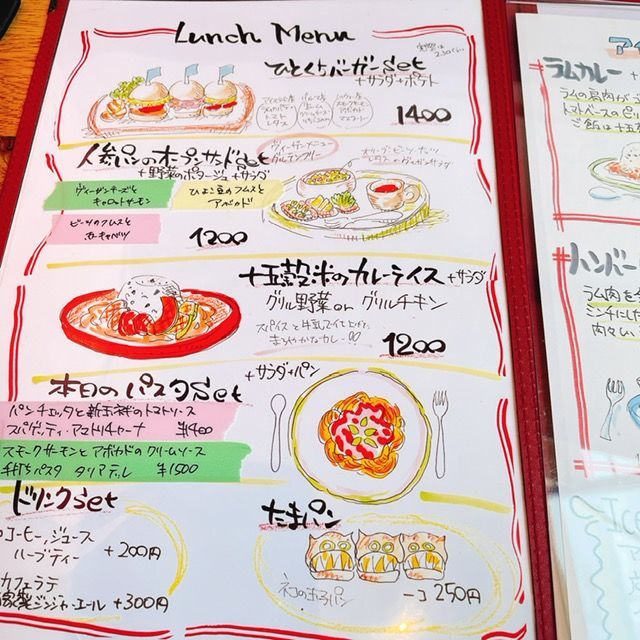 Lunch Menu
ひとくちバーガーset
+サラダ+ポテト
トマト
レタス
1400
人参パンのオープンサンドset
+野菜のポタージュ+サラダ
ヴィーガンメニュー
グルテンフリー
ヴィーガンチーズと
キャロットサーモン
ひよこ豆のフムスと
アボカド
ビーツのフムスと
紫キャベツ
1200
十五穀米のカレーライス +サラダ
グリル野菜 or グリルチキン
まろやかなカレー
1200
本日のパスタset
+サラダ+パン
パンチェッタと新玉ねぎのトマトソース
スパゲッティ・アマトリチャーナ ¥1400
スモークサーモンとアボカドのクリームソース
手打ちパスタ タリアテッレ ¥1500
ドリンクset
コーヒー,ジュース
ハーブティー +200円
カフェラテ
自家製ジンジャーエール +300円
たまパン
ネコのたまごパン
一コ 250円
ラムカレー
ラムの肩肉が
トマトベースのピリ
ご飯は十五
ハンバー
ラム肉を
ミンチにした
肉々しい